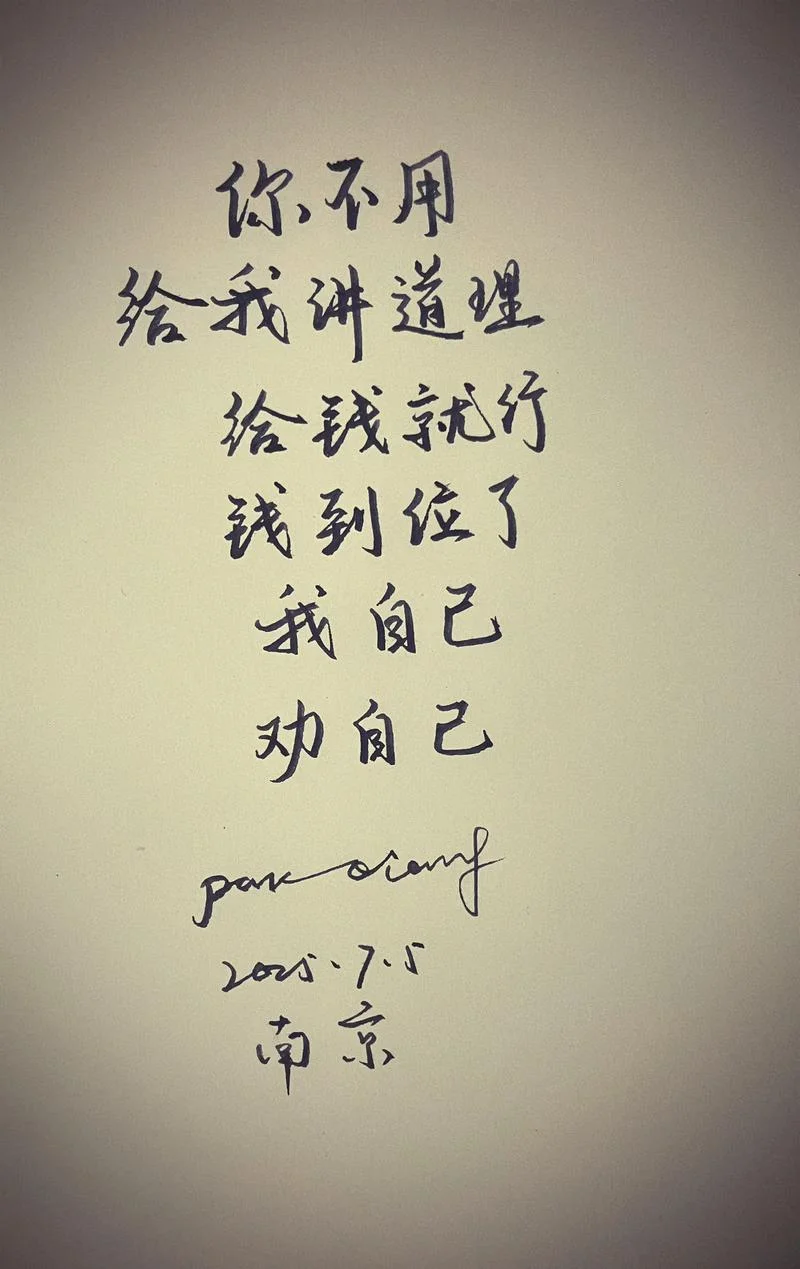 你不用
给我讲道理
给钱就行
钱到位了
我自己
劝自己
2025.7.5
南京